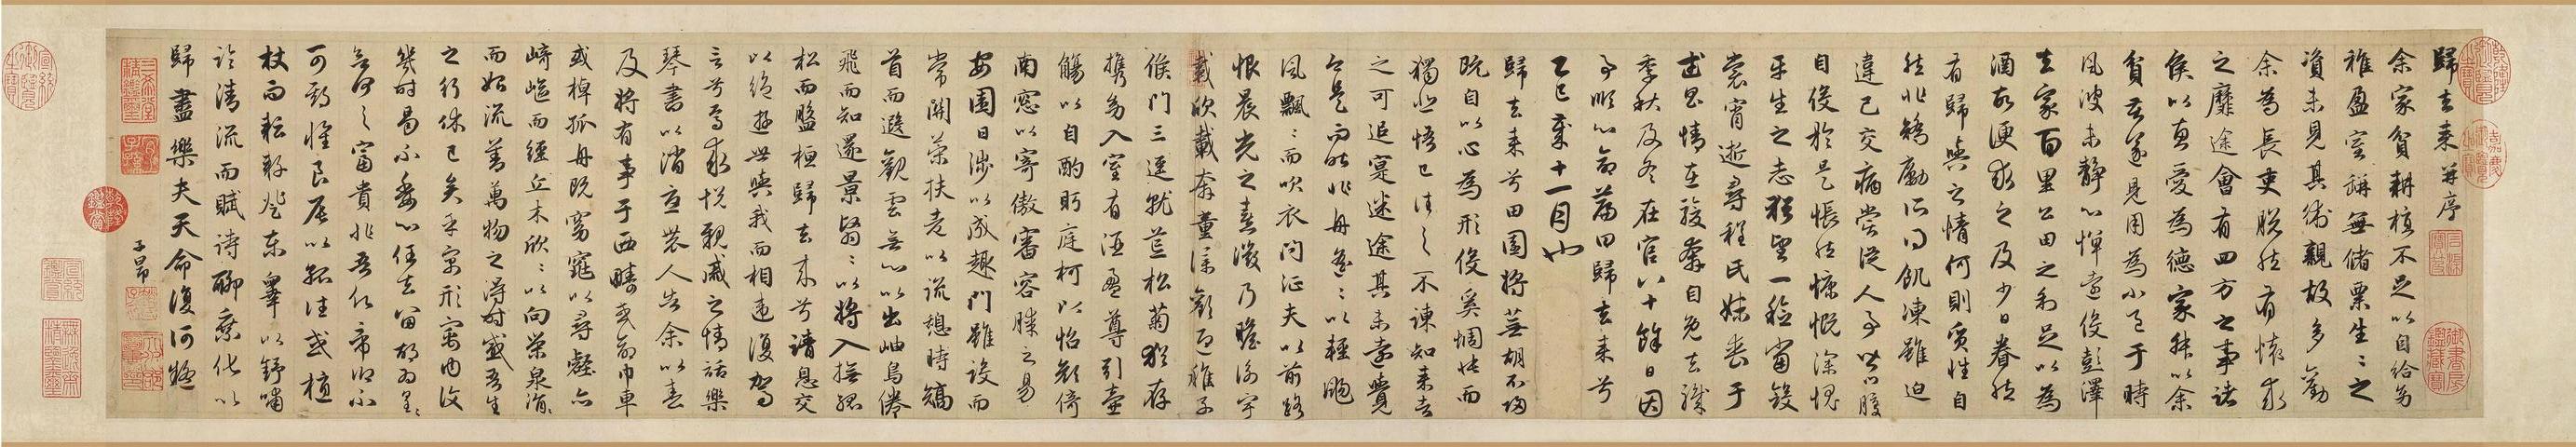 歸去来并序
余家貧耕植不足以自給幼
稚盈室缾無儲粟生〻之
資未見其術親故多勸
余為長吏脱然有懷求
之靡途會有四方之事諸
侯以惠愛為德家叔以余
貧苦遂見用為小邑于時
風波未静心憚遠役彭澤
去家百里公田之利足以為
酒故便求之及少日眷然
有歸與之情何則質性自
然非矯勵所得飢凍雖迫
違己交病嘗從人事皆口腹
自役於是悵然慷慨深愧
平生之志猶望一稔當斂
裳宵逝尋程氏妹喪于
武昌情在駿奔自免去職
季秋及冬在官八十餘日因
事順心命篇曰歸去来兮
乙巳歲十一月也
歸去来兮田園将蕪胡不歸
既自以心為形役奚惆悵而
獨悲悟已往之不諫知来者
之可追寔迷途其未遠覺
今是而昨非舟遥〻以輕颺
風飄〻而吹衣問征夫以前路
恨晨光之熹微乃瞻衡宇
載欣載奔童僕歡迎稚子
候門三逕就荒松菊猶存
携幼入室有酒盈尊引壺
觴以自酌眄庭柯以怡顔倚
南窓以寄傲審容膝之易
安園日涉以成趣門雖設而
常關策扶老以流憩時矯
首而遐觀雲無心以出岫鳥倦
飛而知還景翳〻以將入撫孤
松而盤桓歸去来兮請息交
以絶遊世與我而相違復駕
言兮焉求悦親戚之情話樂
琴書以消憂農人告余以春
及將有事于西疇或命巾車
或棹孤舟既窈窕以尋壑亦
崎嶇而經丘木欣〻以向榮泉涓〻
而始流羡萬物之得時感吾生
之行休已矣乎寓形宇内復
幾時曷不委心任去留胡為遑〻
兮何之富貴非吾願帝鄉不
可期懷良辰以孤往或植
杖而耘耔登東皋以舒嘯
臨清流而賦詩聊乘化以
歸盡樂夫天命復何疑
子昂